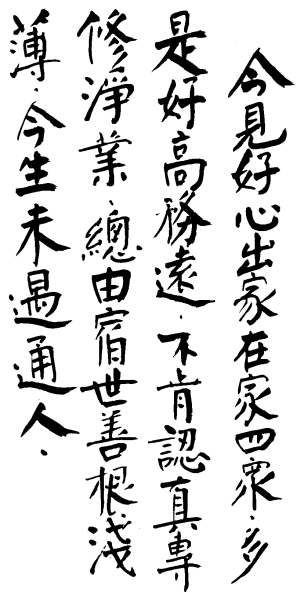 今見好心出家在家四衆.多
是好高務遠.不肯認真專
修淨業.總由宿世善根淺
薄.今生未遇通人.